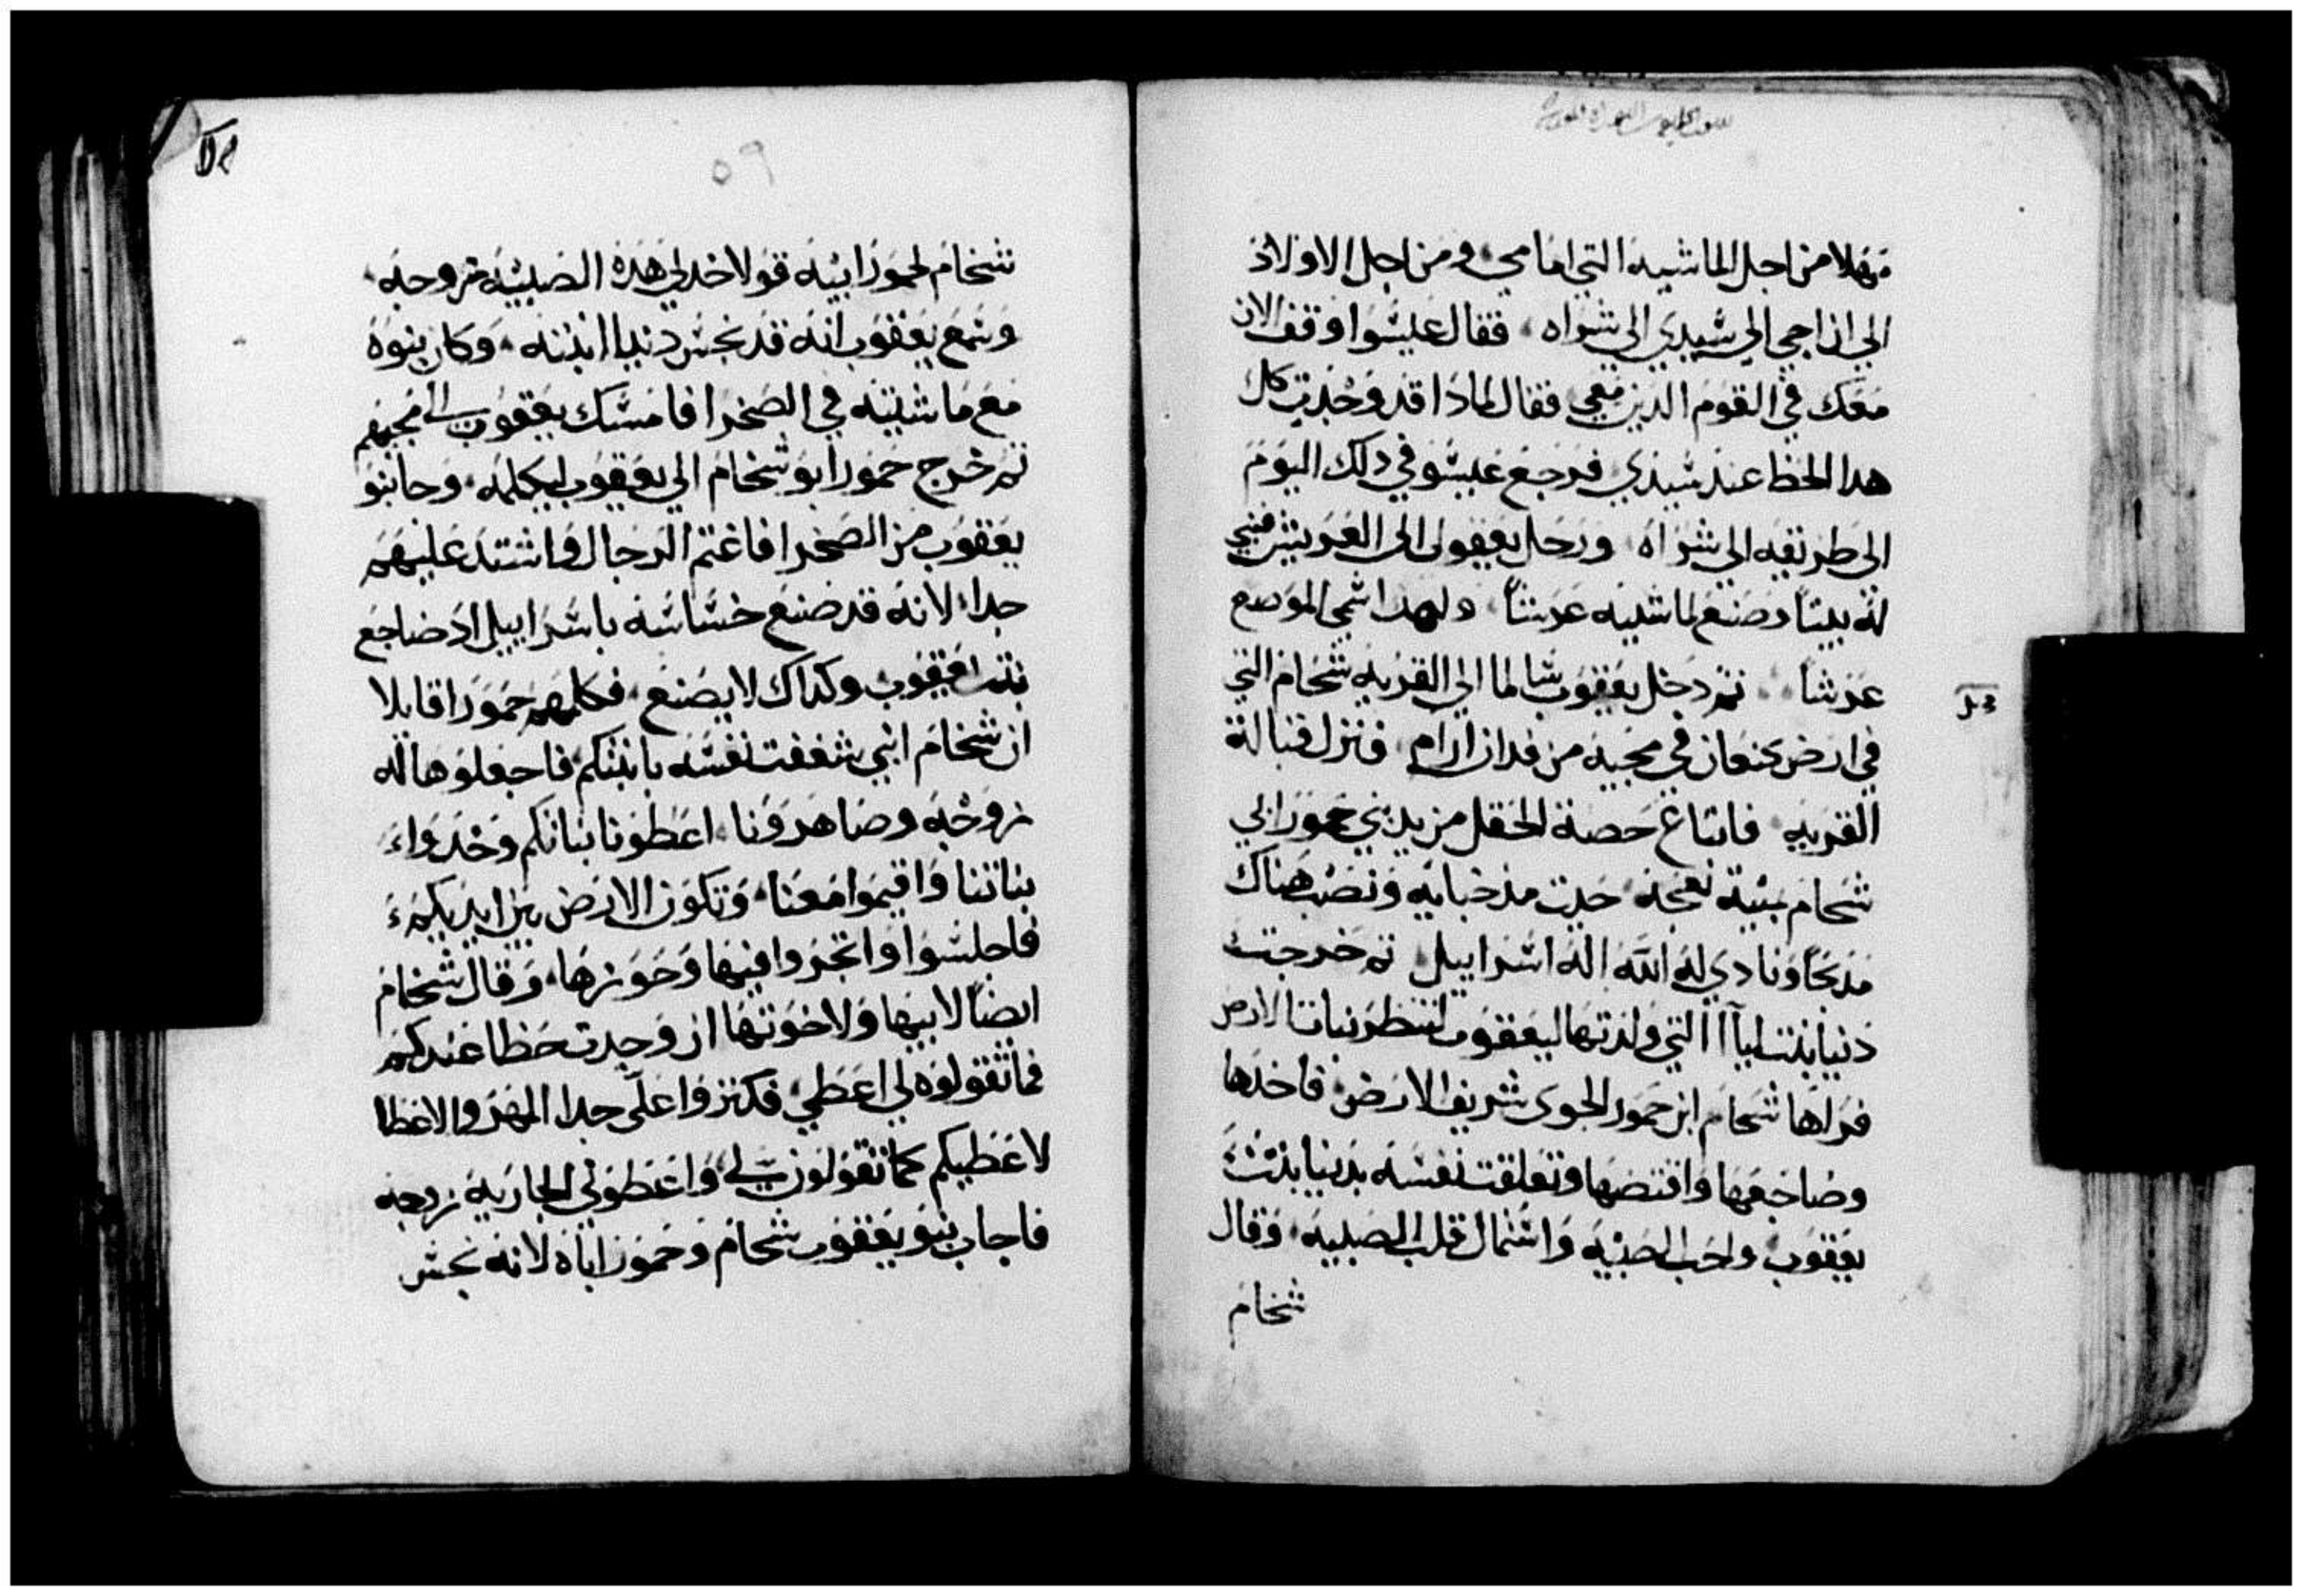 مهلا من اجل الماشيه التي امامي ومن اجل الاولاد
الي ان اجي الي سيدي الي شراه فقال عيسوا وقف الان
معك في القوم الدين معي فقال لمادا قد وجدت كل
هدا الحظ عند سيدي فرجع عيسو في دلك اليوم
الي طريقه الي شراه ورحل يعقوب الي العريش فبني
له بيتاً وصنع لماشيته عرشاً ولهدا اسمي الموضع
عرشاً ثم دخل يعقوب سالما الي القريه شخام التي
في ارض كنعان في مجيه من فدان ارام فنزل قبالة
القريه فابتاع حصة الحقل من يد بني حمور ابي
شخام بمية نعجه حيت مد خبايه ونصب هناك
مدبحاً ونادي له الله اله اسراييل ثم خرجت
دنيا بنت ليا التي ولدتها ليعقوب لتنظر بنات الارض
فراها شخام ابن حمور الحوي شريف الارض فاخدها
وضاجعها وافتضها وتعلقت نفسه بدنيا بنت
يعقوب واحب الصبيه واستمال قلب الصبيه وقال
شخام
٥٩
شخام لحمور ابيه قولا خد لي هده الصبيه زوجه
وسمع يعقوب انه قد نجس دنيا ابنته وكان بنوه
مع ماشيته في الصحرا فامسك يعقوب الي مجيهم
ثم خرج حمور ابو شخام الي يعقوب ليكلمه وجا بنو
يعقوب من الصحرا فاغتم الرجال واشتد عليهم
جدا لانه قد صنع خساسه باسراييل اد ضاجع
بنت يعقوب وكداك لا يصنع فكلمهم حمور اقايلا
ان شخام ابني شغفت نفسه بابنتكم فاجعلوها له
زوجه وصاهرونا اعطونا بناتكم وخدوا
بناتنا واقيموا معنا وتكون الارض بين ايديكم
فاجلسوا واتجروا فيها وحوزها وقال شخام
ايضاً لابيها ولاخوتها ان وجدت حظا عندكم
فما تقولوه لي اعطي فكثروا علي جدا المهر والاعطا
لاعطيكم كما تقولون لي واعطوني الجاريه زوجه
فاجاب بنو يعقوب شخام وحمور اباه لانه نجس